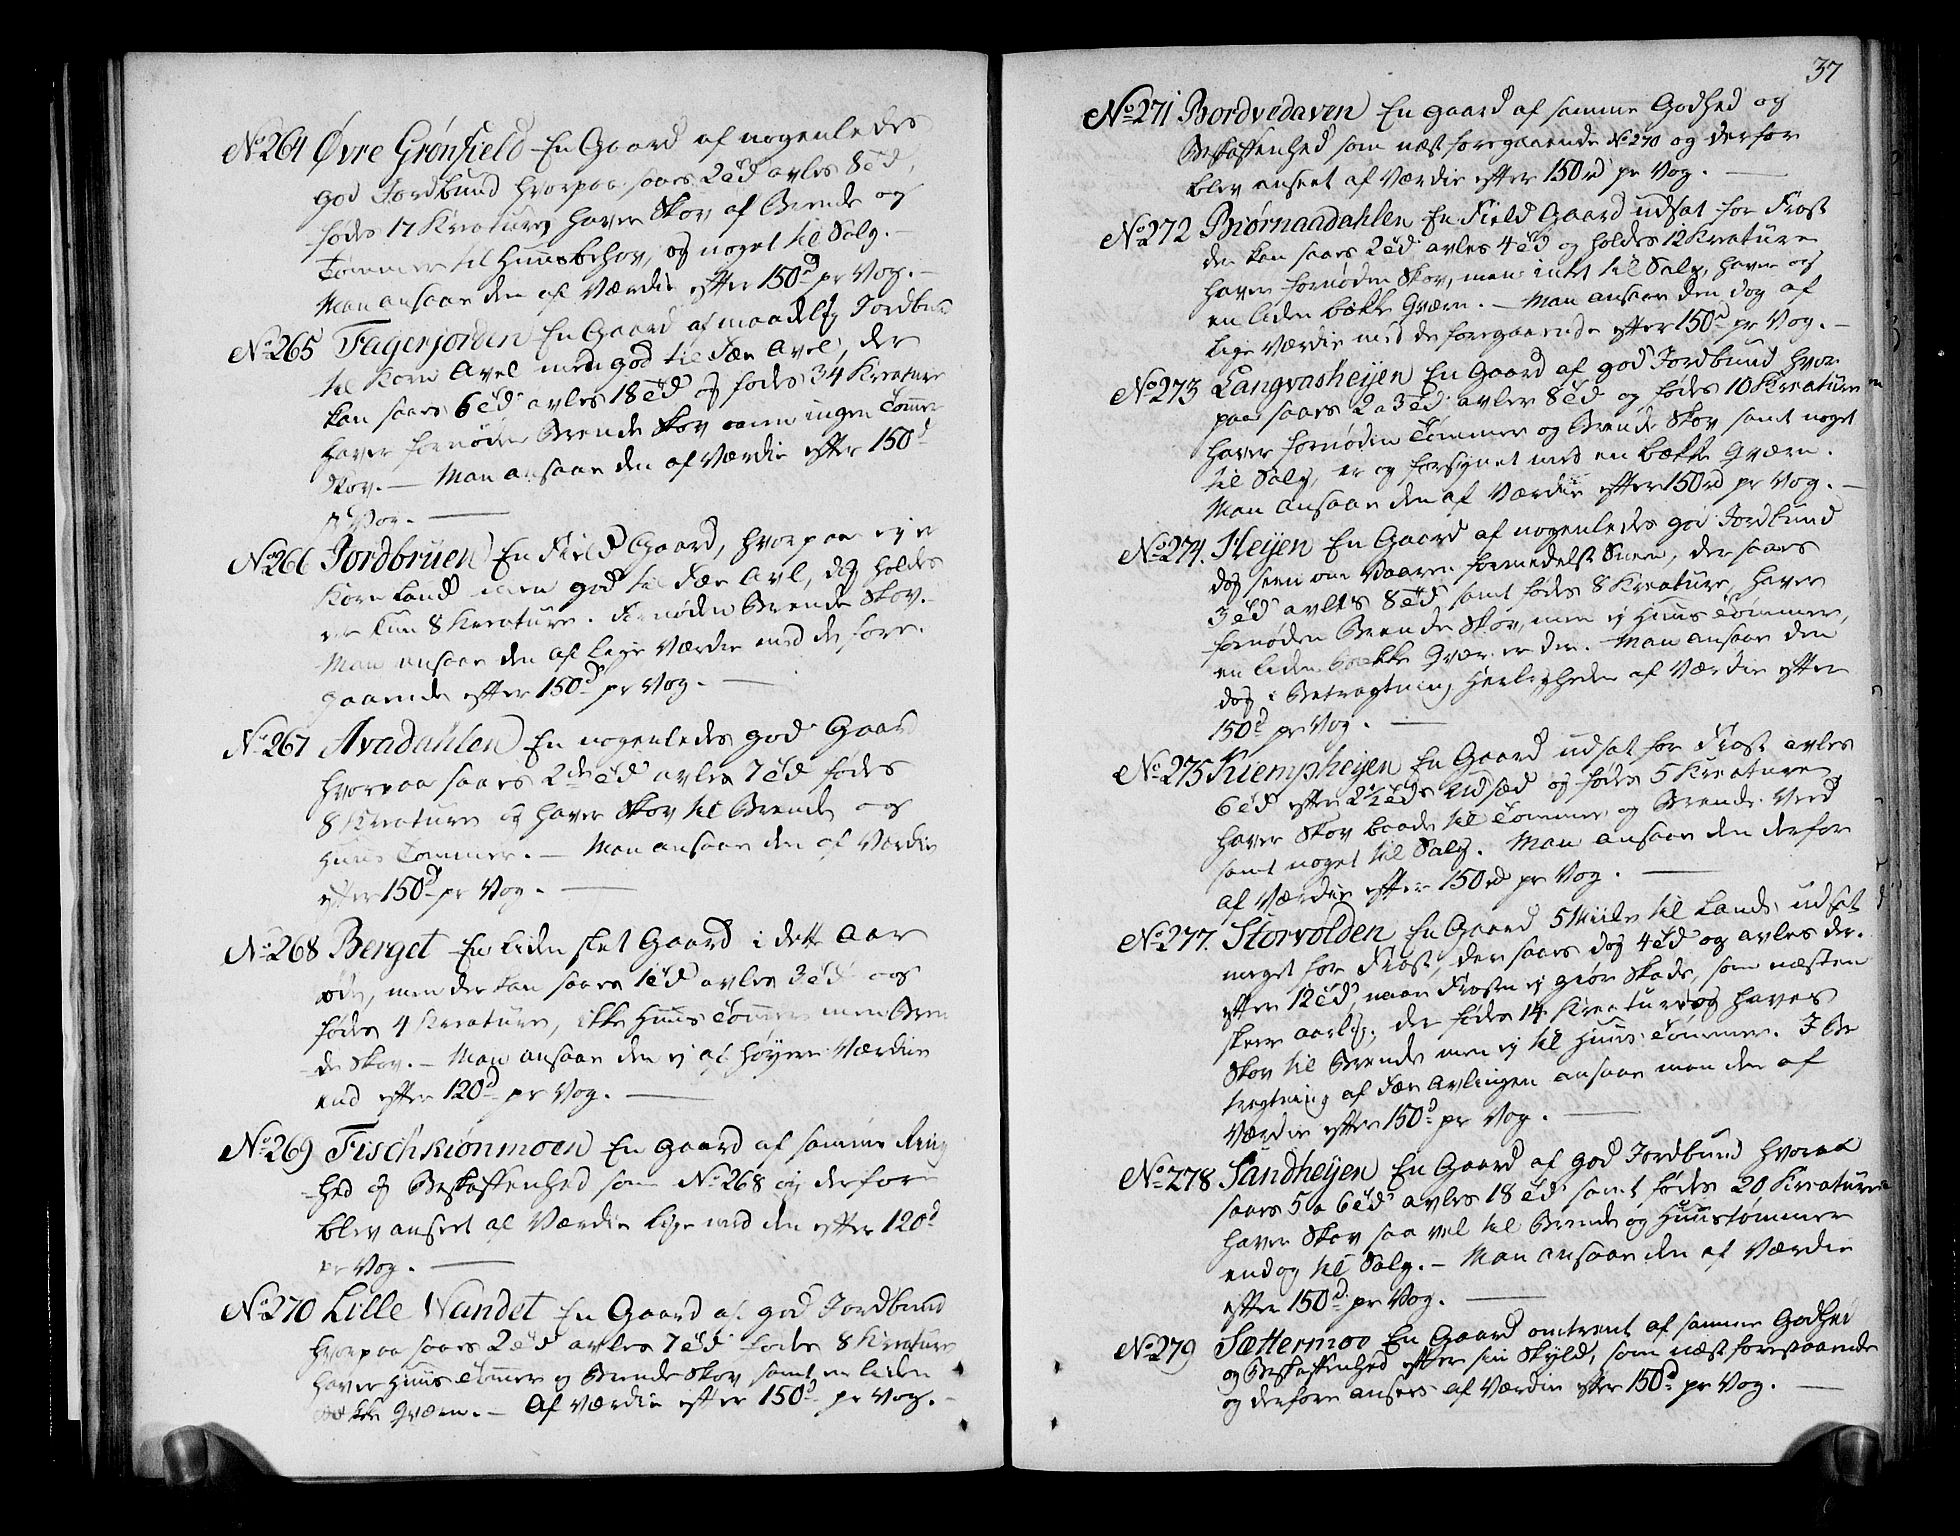 No 264 Øvre Grønfield En Gaard af nogenledes
god Jordbund hvorpaa saaes 2 td avles 8 td,
fødes 17 Kreature, haver Skov af Brende og
Tømmer til Huusbehov, og noget til Salg. —
Man ansaae den af Værdie efter 150 d pr Vog. —
No 265 Fagerjorden En Gaard af maadelig Jordbund
til Korn Avel men god til Fæe Avel, der
kan saaes 6 td avles 18 td og fødes 34 Kreature
haver fornøden Brende Skov men ingen Tømmer
Skov. — Man ansaae den af Værdie efter 150 d
pr Vog. —
No 266 Jordbruen En Field Gaard, hvorpaa ej er
Korn Land men god til Fæe Avl, dog holdes
der kun 8 Kreature. Fornøden Brende Skov. —
Man ansaae den af lige Værdie med de fore-
gaaende efter 150 d pr Vog. —
No 267 Avadahlen En nogenledes god Gaard
hvorpaa saaes 2de td avles 7 td fødes
8 Kreature og haver Skov til Brende og
Huus Tømmer. — Man ansaae den af Værdie
efter 150 d pr Vog. —
No 268 Berget En liden slet Gaard i dette Aar
øde, men der kan saaes 1 td avles 3 td og
fødes 4 Kreature, ikke Huus Tømmer men Bren
de Skov. — Man ansaae den ej af høyere Værdie
end efter 120 d pr Vog. —
No 269 Fischkiønmoen En Gaard af samme Ring
hed og Beskaffenhed som No 268 og derfore
blev anseet af Værdie lige med den efter 120 d
pr Vog. —
No 270 Lille Vandet En Gaard af god Jordbund
hvorpaa saaes 2 td avles 7 td fødes 8 Kreature
haver Huus Tømmer og Brende Skov samt en liden
Bække Qværn. — Af Værdie efter 150 d pr Vog. —
37
No 271 Bordvedaven En Gaard af samme Godhed og
Beskaffenhed som næst foregaaende No 270 og derfor
blev anseet af Værdie efter 150 rd pr Vog. —
No 272 Biørnaadahlen En Field Gaard udsat for Frost
der kan saaes 2 td avles 4 td og holdes 12 Kreature
haver fornøden Skov, men intet til Salg, haver og
en liden bække Qværn. — Man ansaae den dog af
lige Værdie med de foregaaende efter 150 d pr Vog. —
No 273 Langvasheijen En Gaard af god Jordbund hvor
paa saaes 2 a 3 td avler 8 td og fødes 10 Kreaturen
haver fornøden Tømmer og Brende Skov samt noget
til Salg, er og forsynet med en bække Qværn.
Man ansaae den af Værdie efter 150 rd pr Vog. —
No 274. Heijen En Gaard af nogenledes god Jordbund
dog seen om Vaaren formedelst Sneen, der saaes
3 td avles 8 td samt fødes 8 Kreature, haver
fornøden Brende Skov, men ej Huus Tømmer,
en liden bække Qværn er der. Man ansaae den
dog i Betragtning Herligheden af Værdie efter
150 d pr Vog. —
No 275 Kiempheijen En Gaard udsat for Frost avles
6 td efter 2 1/2 tds Udsæd og fødes 5 Kreature
haver Skov baade til Tømmer og Brende Veed
samt noget til Salg. Man ansaae den derfor
af Værdie efter 150 rd pr Vog. —
No 277. Storvolden En Gaard 5 Miile til Lands, udsat
meget for Frost, der saaes dog 4 td og avles der-
efter 12 td, naar Frosten ej giør Skade, som næsten
skeer aarlig, der fødes 14 Kreature og haves
Skov til Brende men ej til Huus Tømmer. I Be
tragtning af Fæe Avlingen ansaae man den af
Værdie efter 150 d pr Vog. —
No 278 Sandheijen En Gaard af god Jordbund hvoraa
saaes 5 a 6 td avles 18 td samt fødes 20 Kreature
haver Skov saa vel til Brende og Huustømmer
endog til Salg. — Man ansaae den af Værdie
efter 150 d pr Vog. —
No 279 Sættermoe En Gaard omtrent af samme Godhed
og Beskaffenhed efter sin Skyld, som næst forestaaende
og derfore ansees af Værdie efter 150 d pr Vog. —